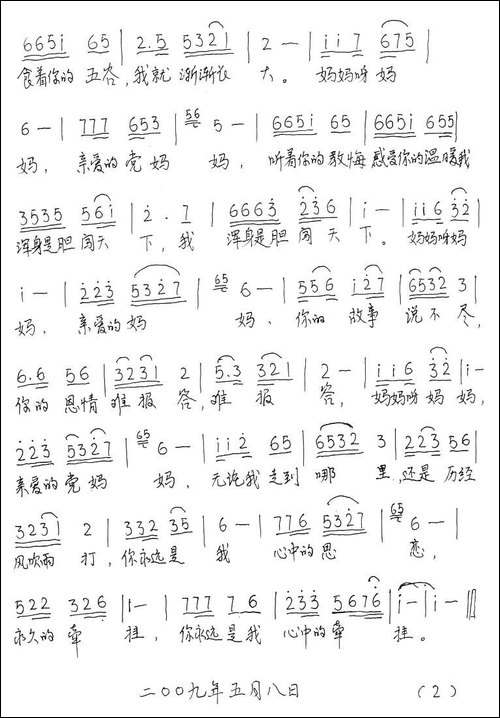 6 6 5 i 6 5 | 2 . 5 5 3 2 1 | 2 — | i i 7 6 7 5 |
食着你的 五谷,我就 渐渐长 大。 妈妈呀 妈
6 — | 7 7 7 6 5 3 | 56 5 — | 6 6 5 i 6 5 | 6 6 5 i 6 5 5 |
妈, 亲爱的 党 妈 妈, 听着你的 教悔 感受你的 温暖我
3 5 3 5 5 6 i | 2 . 7 | 6 6 6 3 2 3 6 | i — | i i 6 3 2 |
浑身是胆 闯 天 下, 我 浑身是胆 闯 天 下。 妈妈呀妈
i — | 2 2 3 5 3 2 7 | 65 6 — | 5 5 6 i 2 7 | 6 5 3 2 3 |
妈, 亲爱的 妈 妈、 你的 故事 说 不 尽,
6 . 6 5 6 | 3 2 3 1 2 | 5 . 3 3 2 1 | 2 — | i i 6 3 2 | i —
你 的 恩情 难 报 答, 难 报 答, 妈妈呀妈 妈,
2 2 3 5 3 2 7 | 65 6 — | i i 2 6 5 | 6 5 3 2 3 | 2 2 3 5 6 |
亲爱的 党 妈 妈, 无论我 走到 哪 里,还是 历经
3 2 3 1 2 | 3 3 2 3 5 | 6 — | 7 7 6 5 3 2 7 | 65 6 — |
风吹雨 打,你永远是 我 心中的 思 恋,
5 2 2 3 2 6 | 1 — | 7 7 7 7 6 | 2 3 3 5 6 7 6 | i — | i — ||
永久的 牵 挂, 你永远是我 心中的 牵 挂。
二〇〇九年五月八日 (2)